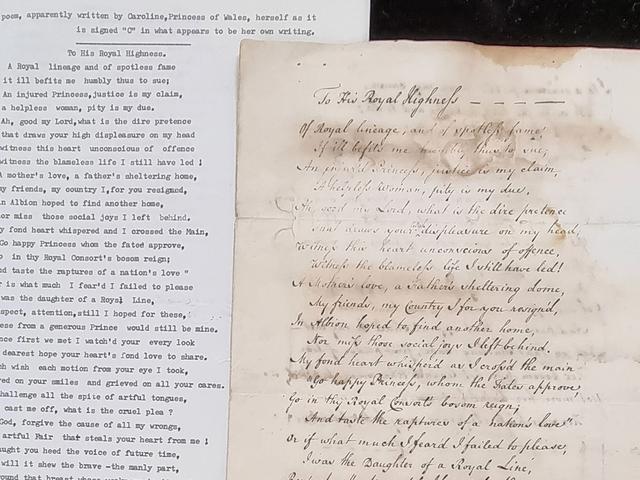 poem, apparently written by Caroline,Princess of Wales, herself as it
is signed "C" in what appears to be her own writing.
To His Royal Highness.
A Royal lineage and of spotless fame
it ill befits me humbly thus to sue;
An injured Princess,justice is my claim,
a helpless woman, pity is my due.
Ah, good my Lord,what is the dire pretence
that draws your high displeasure on my head
witness this heart unconscious of offence
witness the blameless life I still have led !
A mother's love, a father's sheltering home,
my friends, my country I,for you resigned,
in Albion hoped to find another home,
nor miss those social joys I left behind.
My fond heart whispered and I crossed the Main,
Go happy Princess whom the fates approve,
in thy Royal Consort's bosom reign;
and taste the raptures of a nation's love "
r is what much I fear'd I failed to please
was the daughter of a Roysl Line,
spect, attention,still I hoped for these,
ese from a generous Prince would still be mine.
nce first we met I watch'd your every look
dearest hope your heart's fond love to share.
ch wish each motion from your eye I took,
ved on your smiles and grieved on all your cares.
challenge all the spite of artful tongues,
cast me off, what is the cruel plea ?
God, forgive the cause of all my wrongs,
artful Fair that steals your heart from me !
ught you heed the voice of future time,
will it shew the brave -the manly part,
ound that breast whose
To His Royal Highness — — — —
Of Royal lineage, and of spotless fame,
It ill befits me humbly thus to sue;
An injur'd Princess, justice is my claim,
A helpless woman, pity is my due.
Ah, good my Lord, what is the dire pretence
That draws your high displeasure on my head,
Witness this heart unconscious of offence,
Witness the blameless life I still have led!
A Mother's love, a Father's sheltering dome,
My friends, my Country I for you resign'd,
In Albion hoped to find another home,
Nor miss those social joys I left behind.
My fond heart whisper'd as I cross'd the main
"Go happy Princess, whom the Fates approve,
Go in thy Royal Consort's bosom reign;
And taste the raptures of a nation's love"
Or if what much I fear'd I failed to please,
I was the Daughter of a Royal Line,